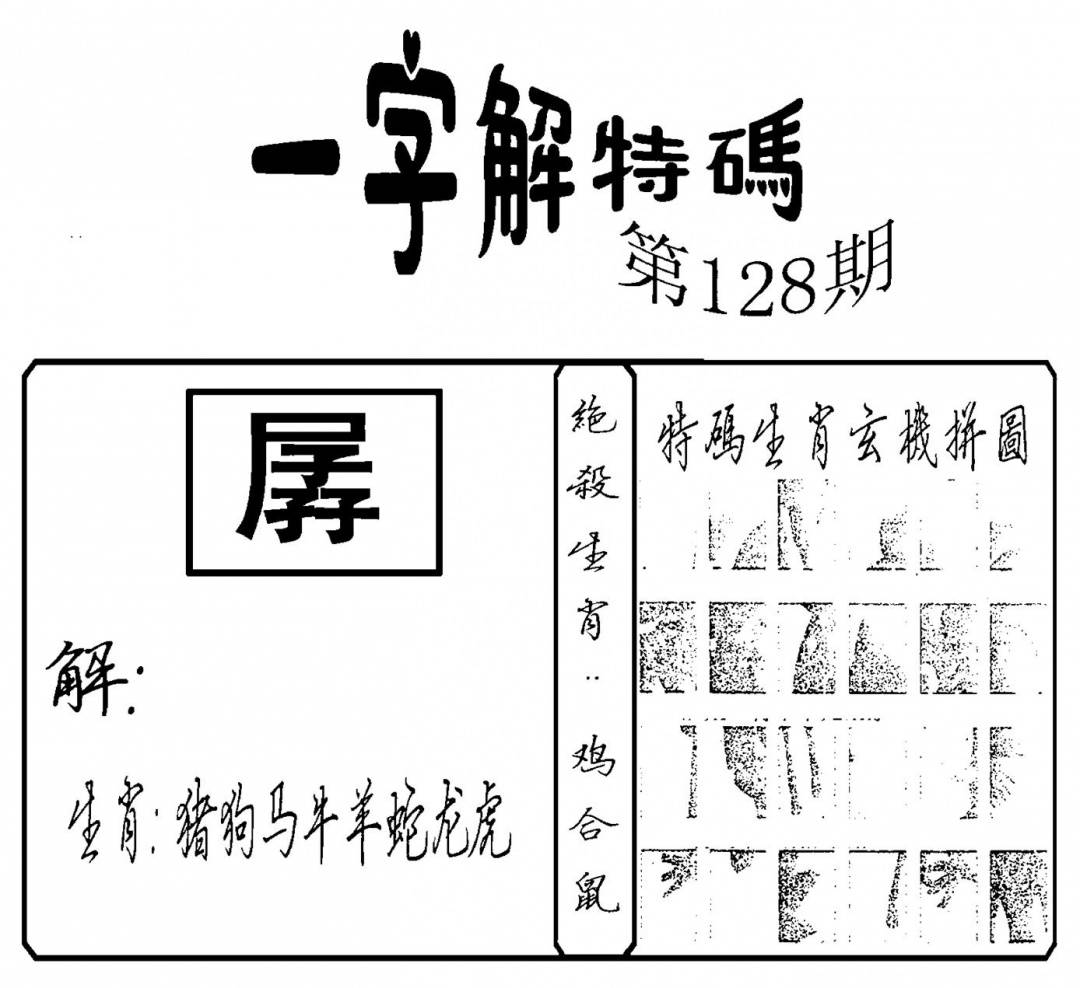 一字解特碼
第128期
孱
解:
生肖:猪狗马牛羊蛇龙虎
絶殺生肖:鸡合鼠
特碼生肖玄機拼圖